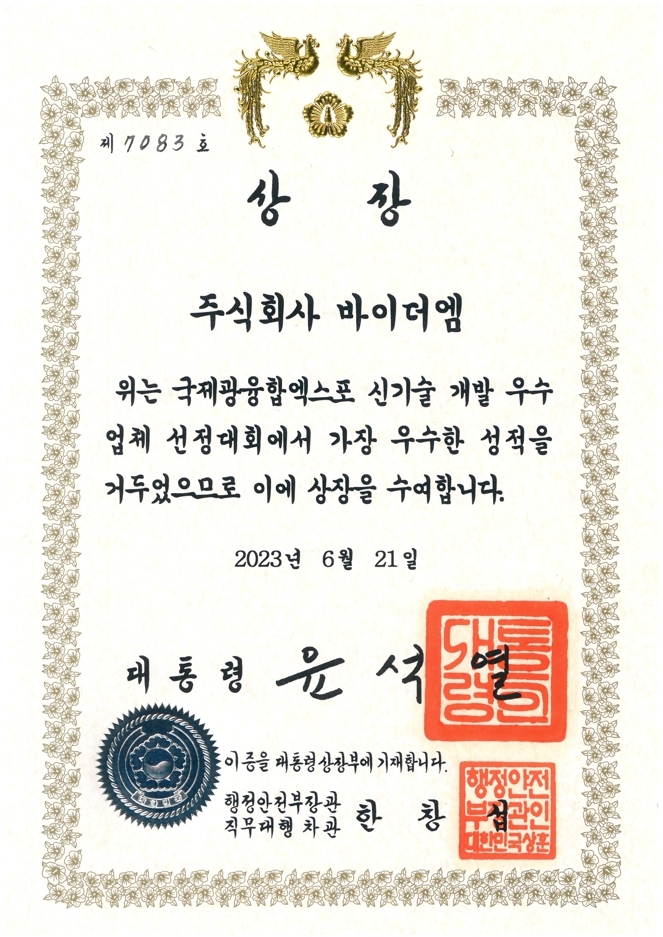 제 7083 호
상 장
주식회사 바이더엠
위는 국제광융합엑스포 신기술 개발 우수
업체 선정대회에서 가장 우수한 성적을
거두었으므로 이에 상장을 수여합니다.
2023년 6월 21일
대통령 윤석열
대통령인
이 증을 대통령상장부에 기재합니다.
행정안전부장관
직무대행 차관 한창섭
행정안전
부장관인
대한민국상훈